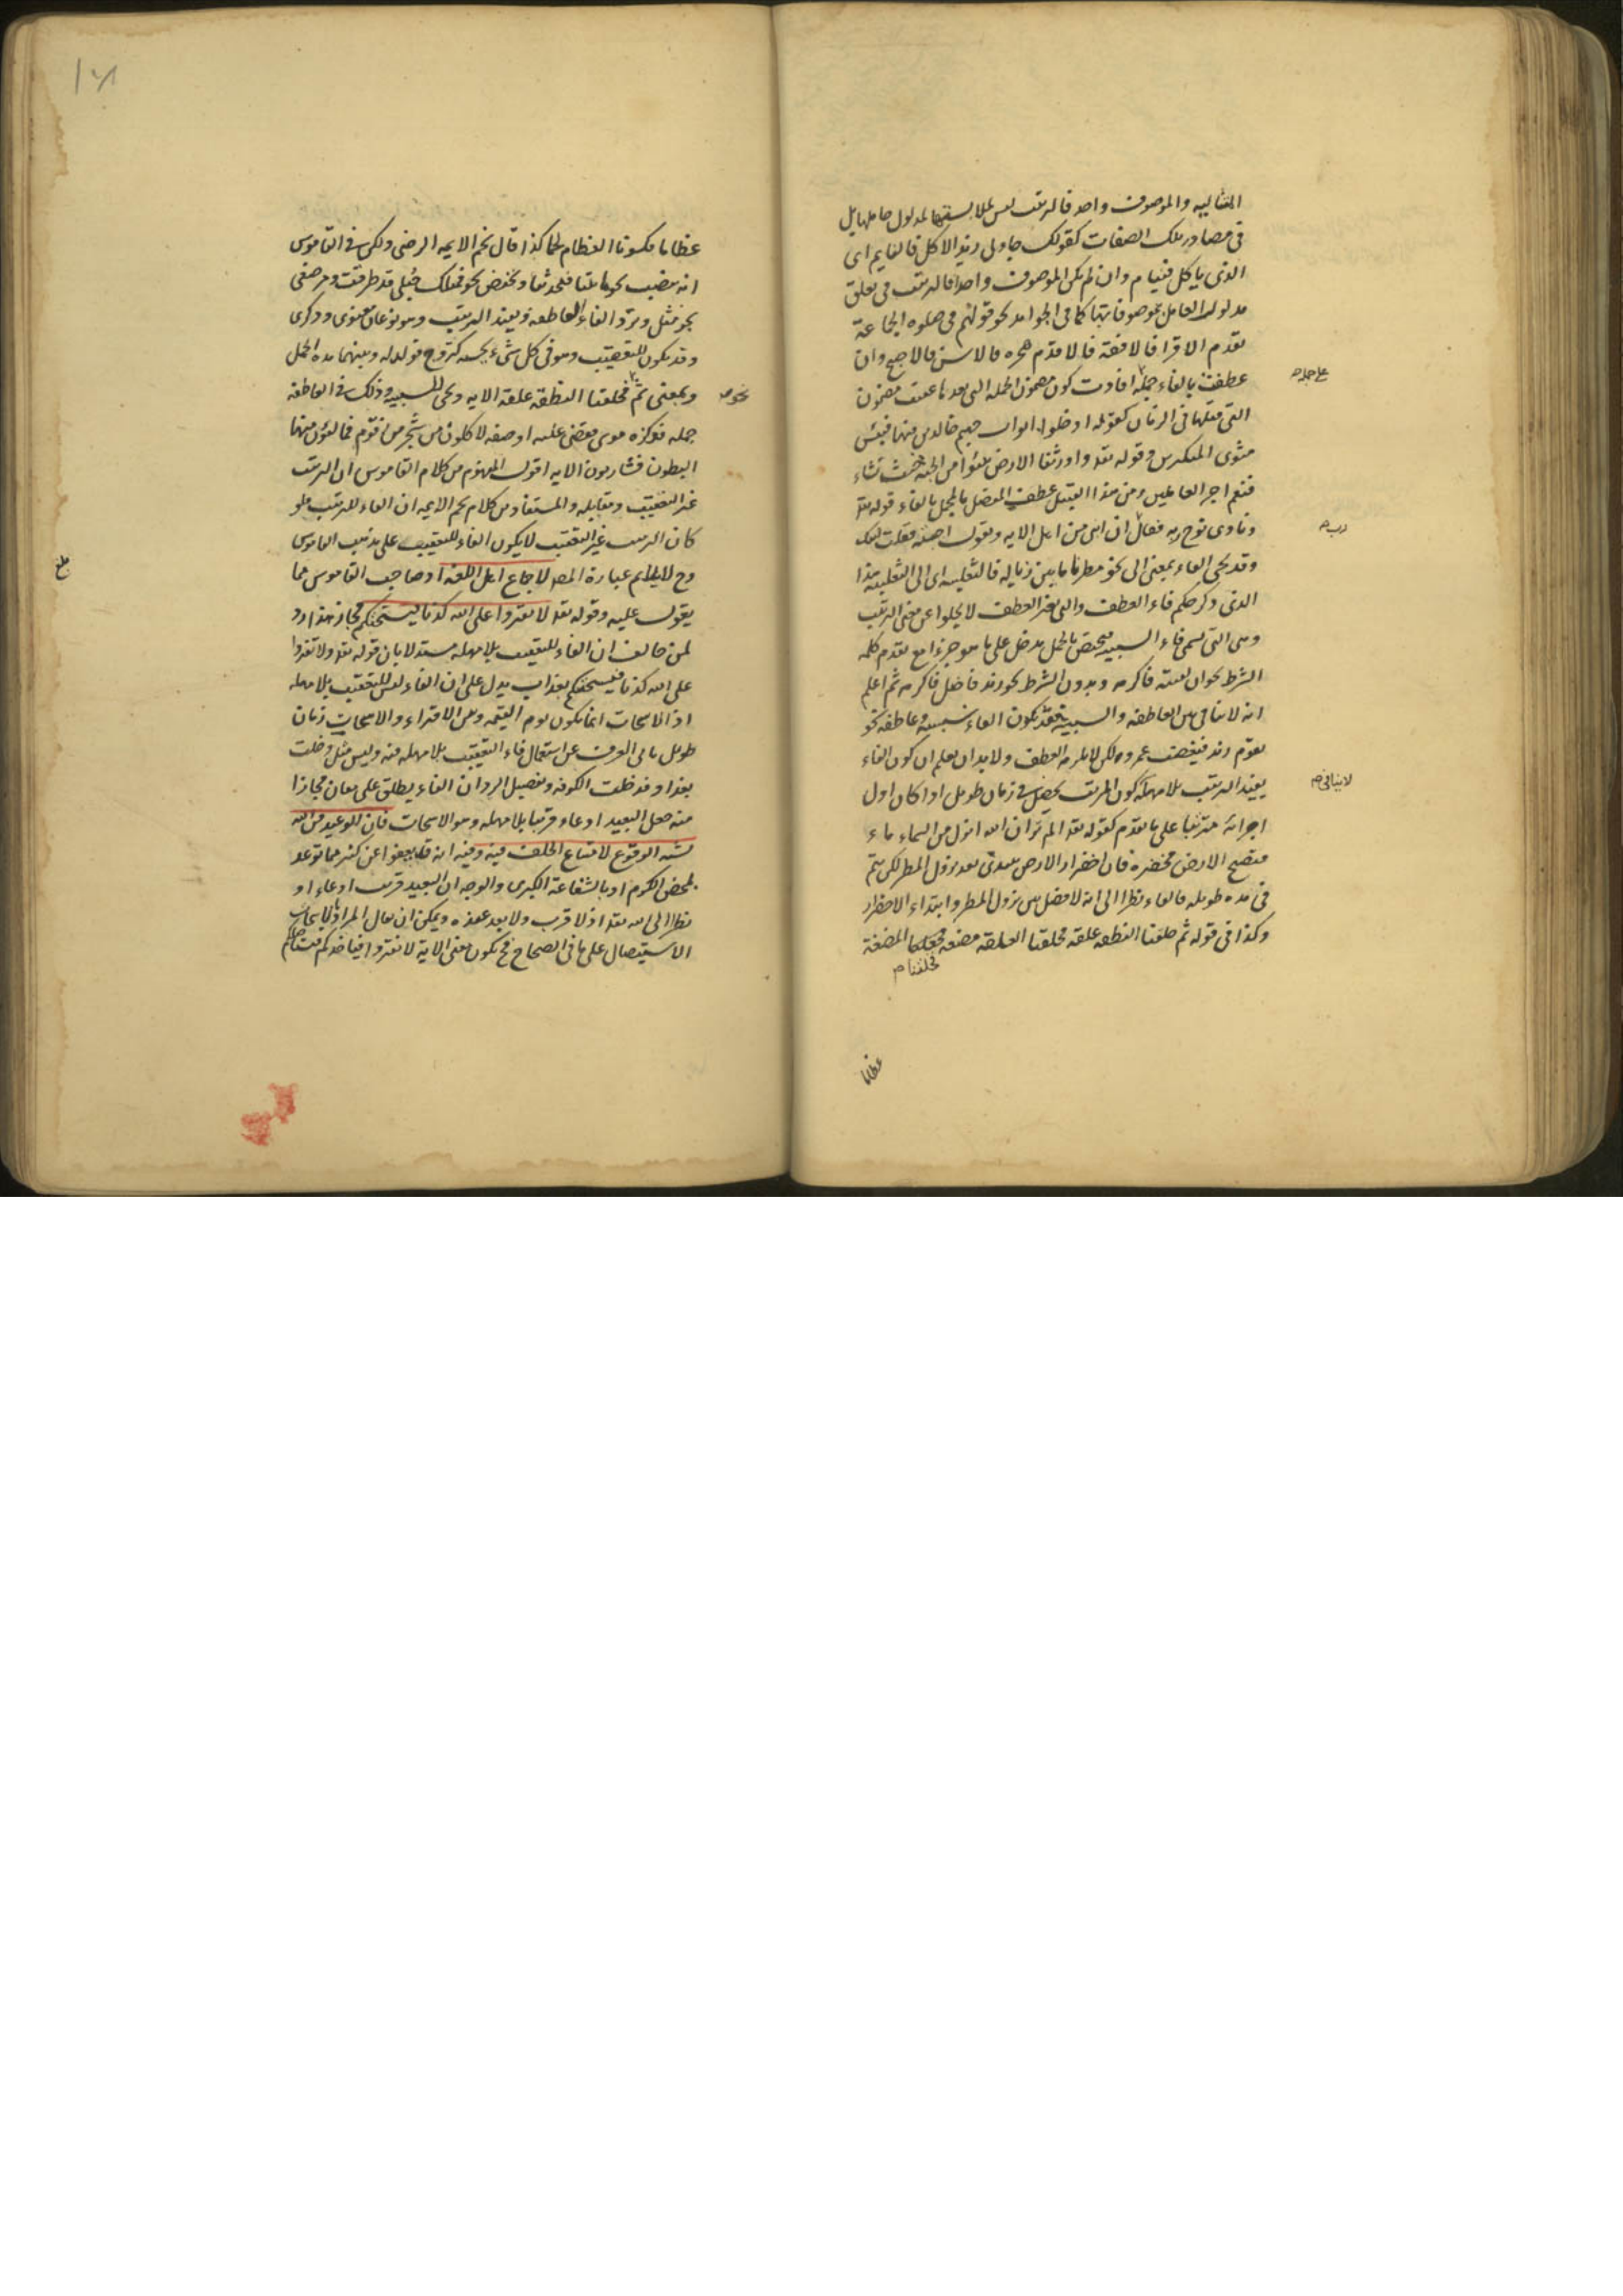 التالية والموصوف واحد فالترتيب ليس لملابستها لمدلول عاملها بل
فى مصادر تلك الصفات كقولك جاءنى زيد الاكل فالنايم اى
الذى ياكل فينام وان لم يكن الموصوف واحدا فالترتيب فى تعلق
مدلول العامل بموصوفاتها كما فى الجوامد نحو قولهم فى صلوة الجماعة
تقدم الاقرا فالافقه فالاقدم هجرة فالاسن فالاصبح وان
عطفت بالفاء جملة افادت كون مضمون الجملة التى بعدها عقيب مضمون
على جملة صح
التى قبلها فى الزمان كقوله ادخلوا ابواب جهنم خالدين فيها فبئس
مثوى المتكبرين وقوله تعه واورثنا الارض نتبوأ من الجنة حيث نشاء
فنعم اجر العاملين ومن هذا القبيل عطف المفصل بالمجمل بالفاء قوله تعه
ونادى نوح ربه فقال ان ابنى من اهلى الاية وتقول اجبته فقلت لبيك
رب صح
وقد يجئ الفاء بمعنى الى نحو مطرنا ما بين زبالة فالثعلبية اى الى الثعلبية هذا
الذى ذكر حكم فاء العطف والتى لغير العطف لا يخلوا عن معنى الترتيب
وهى التى تسمى فاء السببية فيختص بالجمل يدخل على ما هو جزء مع تقدم كلمة
الشرط نحو ان لقيته فاكرمه وبدون الشرط نحو زيد فاضل فاكرمه ثم اعلم
انه لا تنافى بين العاطفة والسببية فقد يكون الفاء سببية وعاطفة نحو
يقوم زيد فيغضب عمرو ولكن لا يلزمه العطف ولا بد ان يعلم ان كون الفاء
يفيد الترتيب بلا مهلة كون المرتب يحصل فى زمان طويل اذا كان اول
لا ينافى صح
اجزائه مترتبا على ما تقدم كقوله تعه الم تر ان الله انزل من السماء ماء
فتصبح الارض مخضرة فان اخضرار الارض يبتدئ بعد نزول المطر لكن يتم
فى مدة طويلة فالفاء نظرا الى انه لا فصل بين نزول المطر وابتداء الاخضرار
وكذا فى قوله ثم خلقنا النطفة علقة فخلقنا العلقة مضغة المضغة
فخلقنا صح
عظاما
عظاما فكسونا العظام لحما كذا قال نجم الايمه الرضى ولكن فى القاموس
انه ينصب نحو ما تاتينا فتحدثنا ويخفض نحو فمثلك حبلى قد طرقت ومرضعى
بجر مثل وترد الفاء العاطفة ويفيد الترتيب وهو نوعان معنوى وذكرى
وقد يكون للتعقيب وهو فى كل شىء بحسبه كتزوج فولد له وبينهما مدة الحمل
وبمعنى ثم نحو فخلقنا النطفة علقة الاية ويجئ للسببية وذلك فى العاطفة
نحو صح
جملة فوكزه موسى فقضى عليه او صفة لاكلون من شجر من زقوم فمالئون منها
البطون فشاربون الاية اقول المفهوم من كلام القاموس ان الترتيب
غير التعقيب ومقابله والمستفاد من كلام نجم الايمه ان الفاء للترتيب فلو
كان الترتيب غير التعقيب لا يكون الفاء للتعقيب على مذهب القاموس
وح لا يلايم عبارة المص لاجماع اهل اللغة اذ صاحب القاموس مما
يعول عليه وقوله تعه لا تفتروا على الله كذبا فيسحتكم مجاز هذا رد
لمن خالف ان الفاء للتعقيب بلا مهلة مستدلا بان قوله تعه ولا تفتروا
على الله كذبا فيسحتكم بعذاب يدل على ان الفاء ليس للتعقيب بلا مهلة
اذ الاسحات انما يكون يوم القيمة وبين الافتراء والاسحات زمان
طويل يابى العرف عن استعمال فاء التعقيب بلا مهلة فيه وليس مثل دخلت
بغداد فدخلت الكوفة وتفصيل الرد ان الفاء يطلق على معان مجازا
منه جعل البعيد ادعاء قريبا بلا مهلة وهو الاسحات فان الوعيد من الله
الوقوع لامتناع الخلف فيه وفيه انه قد يعفوا عن كثير مما توعد
لمحض الكرم او بالشفاعة الكبرى والوجه ان البعيد قريب ادعاء او
نظرا الى الله تعه اذ لا قرب ولا بعد عنده ويمكن ان يقال المراد بالاسحات
الاستيصال على ما فى الصحاح فح يكون معنى الاية لا تفتروا فياخذكم